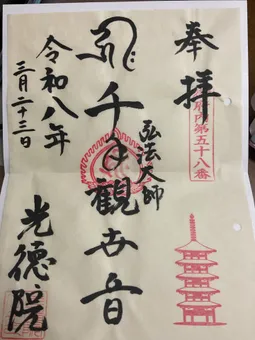 奉拝
府内第五十八番
弘法大師
千手観世音
令和八年
三月二十三日
光徳院